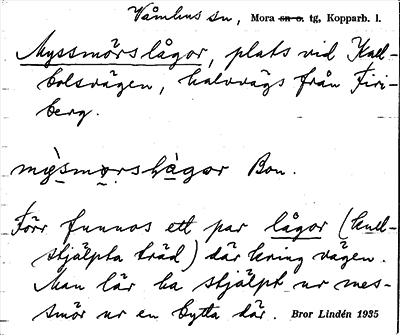 Våmhus sn, Mora sn o. tg, Kopparb. l.
Myssmörslågor, plats vid Kull-
bolsvägen, halvvägs från Firi-
berg.
mỳsmo̤rslàgar Bon.
Förr funnos ett par lågor (kull-
stjälpta träd) där kring vägen.
Man lär ha stjälpt ur mes-
smör ur en bytta där. Bror Lindén 1935